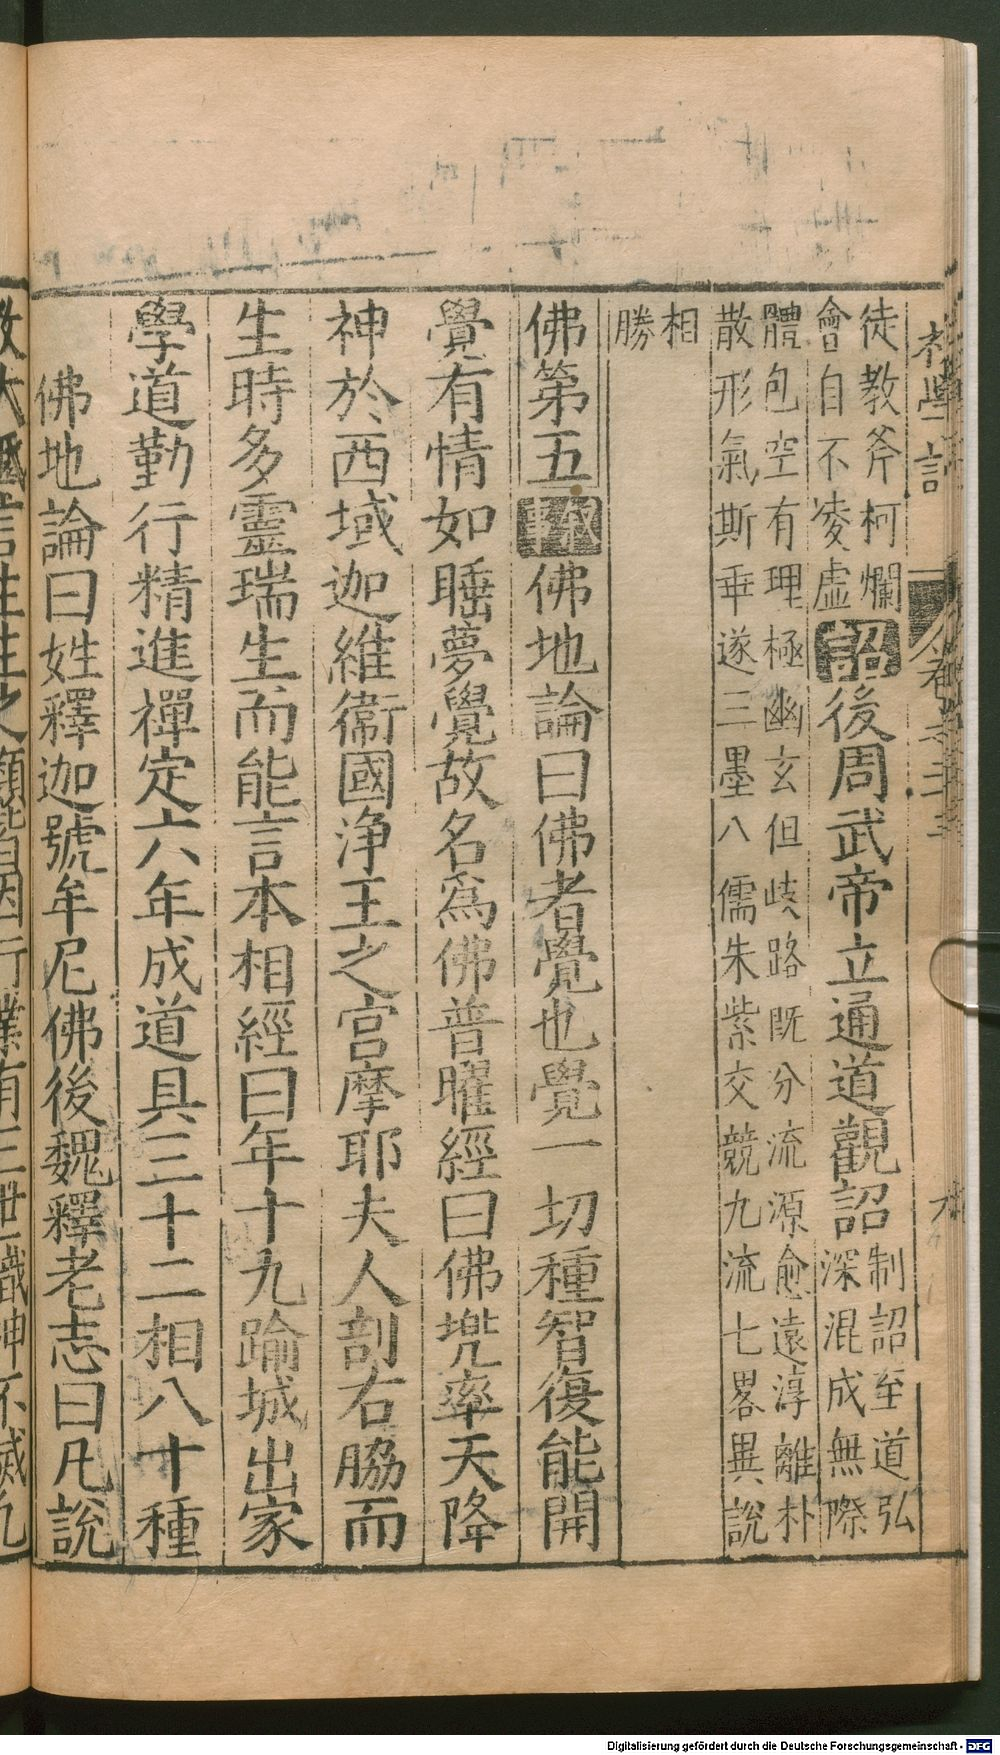 初學記 卷之二十三
徒教斧柯爛
會自不凌虛
詔後周武帝立通道觀詔
制詔至道弘
深混成無際
體包空有理極幽玄但歧路既分流源愈遠淳離朴
散形氣斯乖遂三墨八儒朱紫交競九流七畧異說
相
勝
佛第五
敘事
佛地論曰佛者覺也覺一切種智復能開
覺有情如睡夢覺故名為佛普曜經曰佛兠率天降
神於西域迦維衞國浄王之宮摩耶夫人剖右脇而
生時多靈瑞生而能言本相經曰年十九踰城出家
學道勤行精進禪定六年成道具三十二相八十種
佛地論曰姓釋迦號牟尼佛後魏釋老志曰凡說
教大
言生生之類皆因行業有三世識神不滅凡
Digitalisierung gefördert durch die Deutsche Forschungsgemeinschaft - DFG